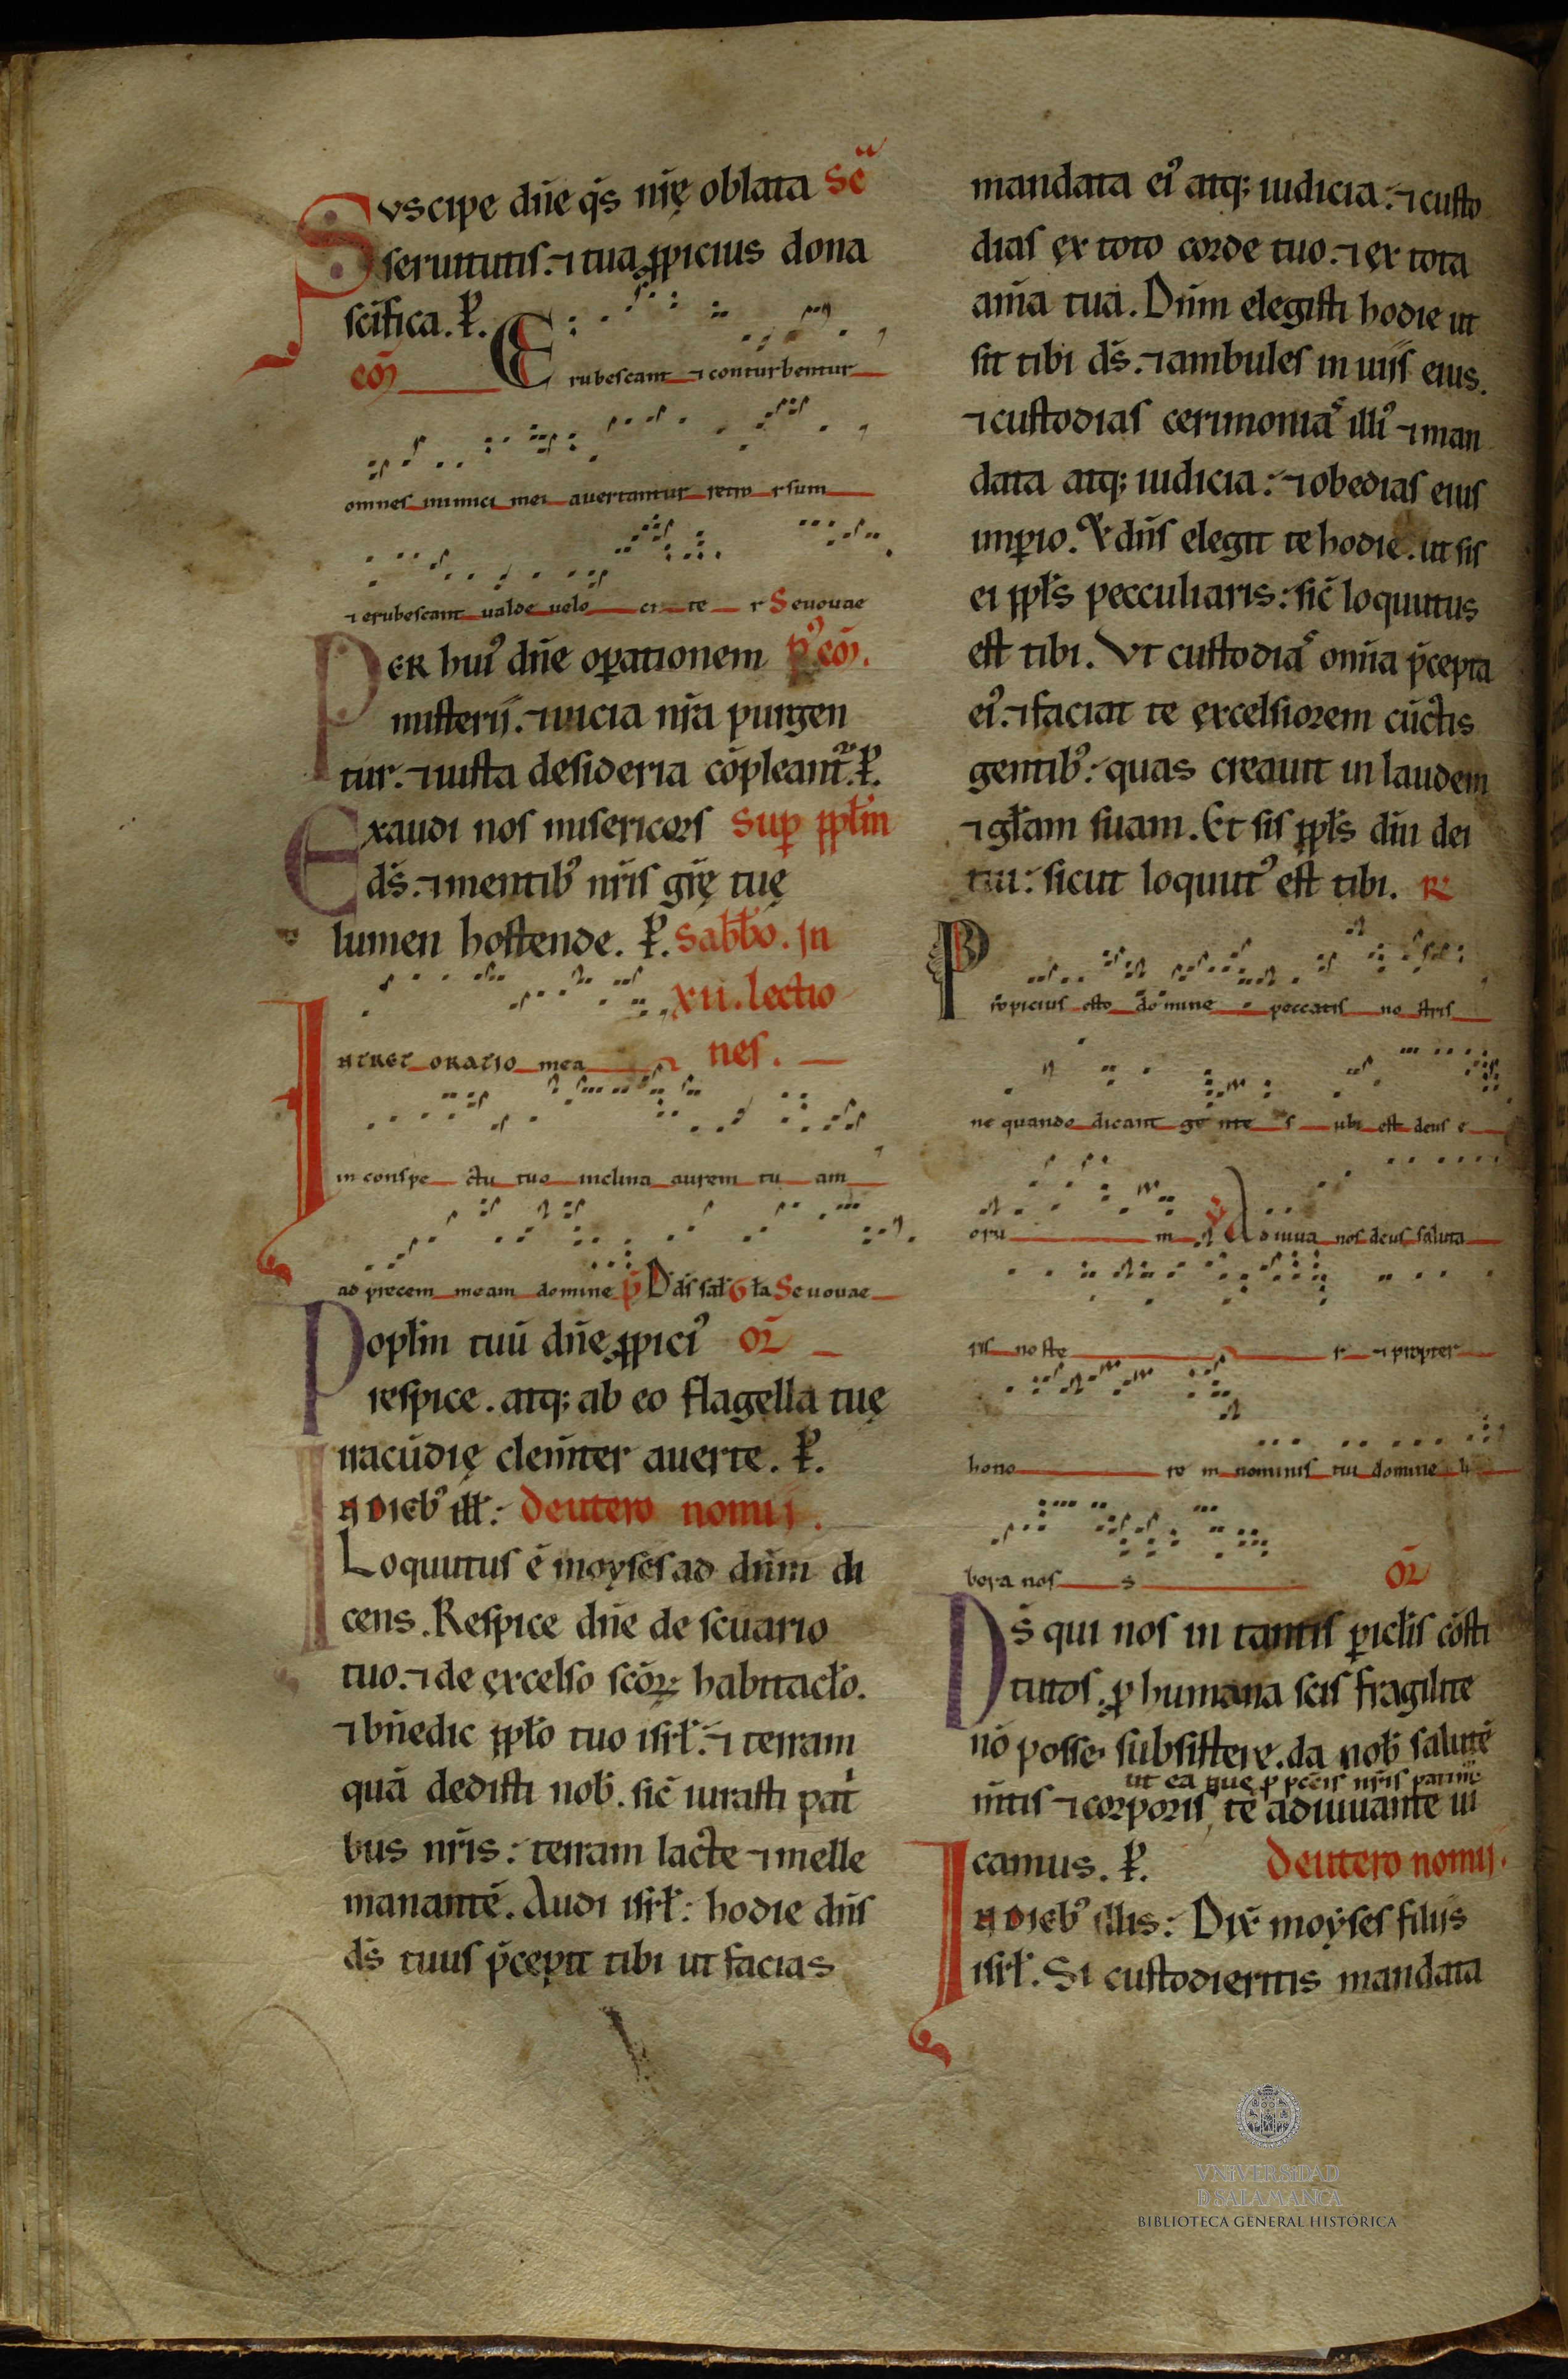 Svscipe dn̄e q̄s nr̄ę oblata Sēᵃ
seruitutis. ⁊ tua ꝓpicius dona
sc̄ifica. P̱.
cō Erubescant ⁊ conturbentur
omnes inimici mei auertantur retro rsum
⁊ erubescant ualde uelo ci te r Seuouae
PER hui᷒ dn̄e oꝑationem p᷒ cō.
misterij. ⁊ uicia nr̄a purgen
tur. ⁊ iusta desideria cōpleant᷑. P̱.
Exaudi nos misericors Suꝑ ppl̄m
ds̄. ⁊ mentib᷒ nr̄is gr̄ę tuę
lumen hostende. P̱. Sabb̄o. In
xii. lectio
INTRET ORATIO mea nes.
in conspe ctu tuo inclina aurem tu am
ad precem meam domine p̄s D ds̄ sal̄ Gl̄a Seuouae
Popl̄m tuū dn̄e ꝓpici᷒ oR̄
respice. atq; ab eo flagella tuę
iracūdię clem̄ter auerte. P̱.
IN DIEB᷒ ill̄: deutero nomij.
Loquutus ē moyses ad dn̄m di
cens. Respice dn̄e de sc̄uario
tuo. ⁊ de ęxcelso sc̄oꝝ habitacl̄o.
⁊ bn̄edic ppl̄o tuo isrl̄. ⁊ terram
quā dedisti nob̄. sic̄ iurasti pat
bus nr̄is: terram lacte ⁊ melle
manantē. Audi isrl̄: hodie dn̄s
ds̄ tuus p̄cepit tibi ut facias
mandata ei᷒ atq; iudicia: ⁊ custo
dias ęx toto corde tuo. ⁊ ęx tota
anīa tua. Dn̄m elegisti hodie ut
sit tibi ds̄. ⁊ ambules in uijs eius.
⁊ custodias cerimoniaˢ illi᷒ ⁊ man
data atq; iudicia: ⁊ obedias eius
imꝑio. Et dn̄s elegit te hodie. ut sis
ei ppl̄s pecculiaris: sic̄ loquutus
est tibi. Vt custodiaˢ om̄ia p̄cepta
ei᷒. ⁊ faciat te ęxcelsiorem cūctis
gentib᷒: quas creauit in laudem
⁊ gl̄am suam. Et sis ppl̄s dn̄i dei
tui: sicut loquut᷒ est tibi. R̷
Propicius esto domine peccatis no stris
ne quando dicant ge nte s ubi est deus e
oru m ℣ Adiuua nos deus saluta
ris no ste r ⁊ propter
hono re m nominis tui domine li
bera nos s oR̄
Ds̄ qui nos in tantis ꝑicl̄is cōsti
tutos. ꝓ humana scis fragilite
nō posse subsistere. da nob̄ salutē
ut ea que ꝓ pccīs nr̄is patim᷒
m̄tis ⁊ corporis, te adiuuante ui
camus. P̱. deutero nomij.
IN DIEB᷒ illis: Dix̄ moyses filijs
isrl̄. Si custodieritis mandata
VNIVERSIDAD
D SALAMANCA
BIBLIOTECA GENERAL HISTÓRICA